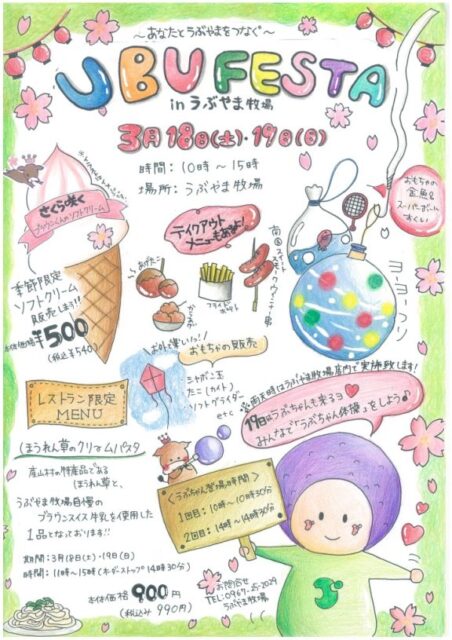 ～あなたとうぶやまをつなぐ～
UBUFESTA
in うぶやま牧場
3月18日(土)・19日(日)
時間：10時～15時
場所：うぶやま牧場
さくら咲く
ブラウンくんのソフトクリーム
季節限定
ソフトクリーム
販売します!!
本体価格¥500
(税込¥540)
テイクアウト
メニューもあるよ!
あげたこ
フライドポテト
からあげ
おもちゃの
金魚&
スーパーボール
すくい
ヨーヨーつり
お外で遊びたい!
おもちゃの販売
シャボン玉
たこ(カイト)
ソフトグライダー
etc
レストラン限定
MENU
ほうれん草のクリームパスタ
産山村の特産品である
ほうれん草と、
うぶやま牧場自慢の
ブラウンスイス牛乳を使用した
1品となっております!!
期間：3月18日(土)・19日(日)
時間：11時～15時(オーダーストップ14時30分)
本体価格900円
(税込み990円)
雨天時はうぶやま牧場店内で実施致します!
19日はうぶちゃんも来るヨ
みんなで「うぶちゃん体操」をしよう♪
〈うぶちゃん登場の時間〉
1回目：10時～10時30分
2回目：14時～14時30分
お問合せ
TEL:0967-25-2029
うぶやま牧場